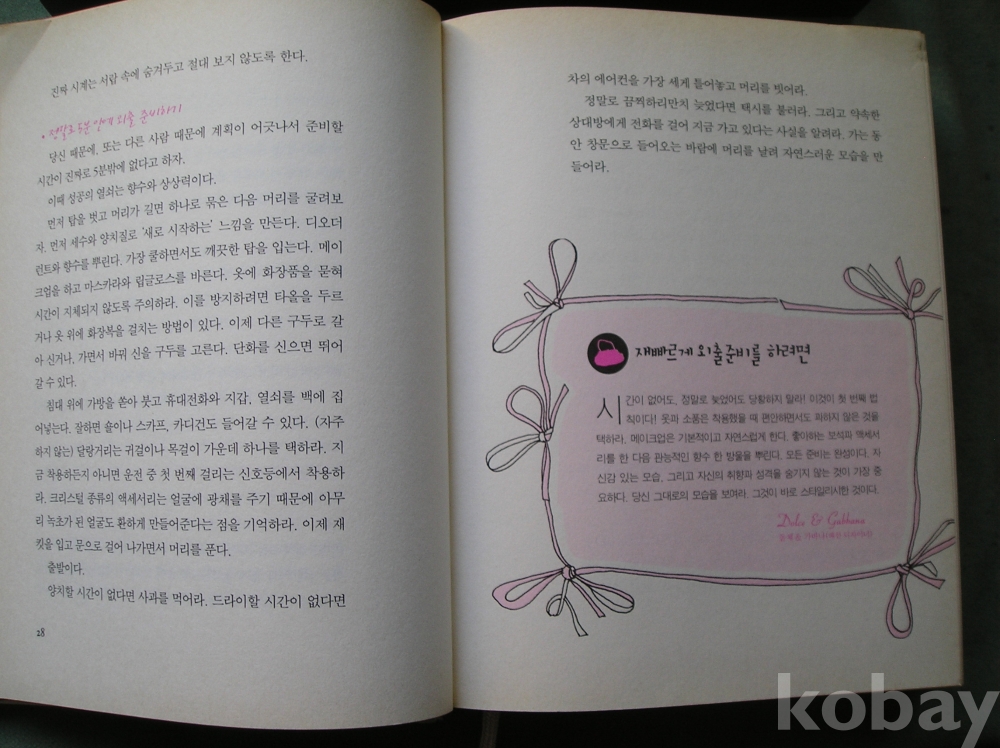 진짜 시계는 서랍 속에 숨겨두고 절대 보지 않도록 한다.
• 정말로 5분 안에 외출 준비하기
당신 때문에, 또는 다른 사람 때문에 계획이 어긋나서 준비할
시간이 진짜로 5분밖에 없다고 하자.
이때 성공의 열쇠는 향수와 상상력이다.
먼저 탑을 벗고 머리가 길면 하나로 묶은 다음 머리를 굴려보
자. 먼저 세수와 양치질로 '새로 시작하는' 느낌을 만든다. 디오더
런트와 향수를 뿌린다. 가장 쿨하면서도 깨끗한 탑을 입는다. 메이
크업을 하고 마스카라와 립글로스를 바른다. 옷에 화장품을 묻혀
시간이 지체되지 않도록 주의하라. 이를 방지하려면 타올을 두르
거나 옷 위에 화장복을 걸치는 방법이 있다. 이제 다른 구두로 갈
아 신거나, 가면서 바꿔 신을 구두를 고른다. 단화를 신으면 뛰어
갈 수 있다.
침대 위에 가방을 쏟아 붓고 휴대전화와 지갑, 열쇠를 백에 집
어넣는다. 잘하면 숄이나 스카프, 카디건도 들어갈 수 있다. (자주
하지 않는) 달랑거리는 귀걸이나 목걸이 가운데 하나를 택하라. 지
금 착용하든지 아니면 운전 중 첫 번째 걸리는 신호등에서 착용하
라. 크리스털 종류의 액세서리는 얼굴에 광채를 주기 때문에 아무
리 녹초가 된 얼굴도 환하게 만들어준다는 점을 기억하라. 이제 재
킷을 입고 문으로 걸어 나가면서 머리를 푼다.
출발이다.
양치할 시간이 없다면 사과를 먹어라. 드라이할 시간이 없다면
28
차의 에어컨을 가장 세게 틀어놓고 머리를 빗어라.
정말로 끔찍하리만치 늦었다면 택시를 불러라. 그리고 약속한
상대방에게 전화를 걸어 지금 가고 있다는 사실을 알려라. 가는 동
안 창문으로 들어오는 바람에 머리를 날려 자연스러운 모습을 만
들어라.
재빠르게 외출준비를 하려면
시간이 없어도, 정말로 늦었어도 당황하지 말라! 이것이 첫 번째 법
칙이다! 옷과 소품은 착용했을 때 편안하면서도 과하지 않은 것을
택하라. 메이크업은 기본적이고 자연스럽게 한다. 좋아하는 보석과 액세서
리를 한 다음 관능적인 향수 한 방울을 뿌린다. 모든 준비는 완성이다. 자
신감 있는 모습, 그리고 자신의 취향과 성격을 숨기지 않는 것이 가장 중
요하다. 당신 그대로의 모습을 보여라. 그것이 바로 스타일리시한 것이다.
Dolce & Gabbana
kobay